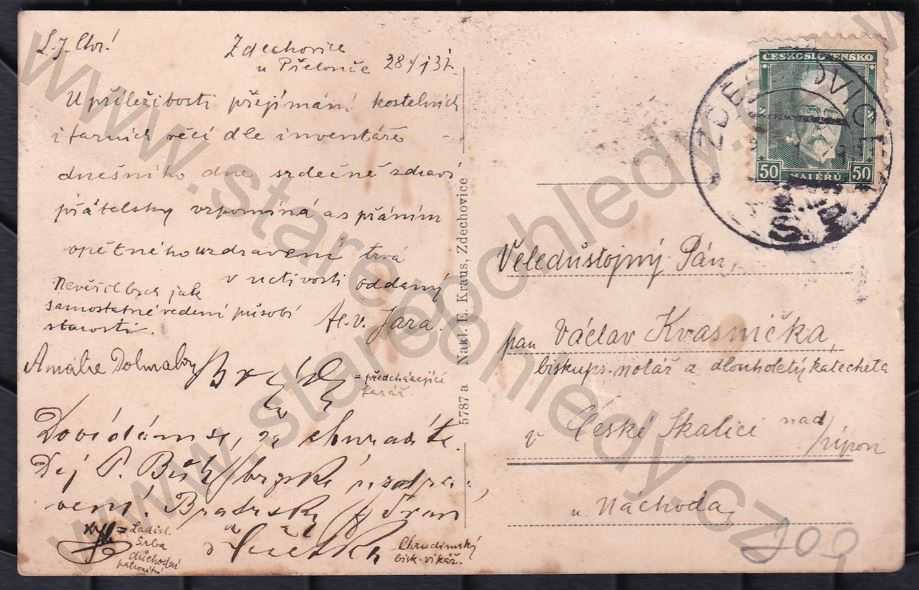 L. J. Chr!
Zdechovice
u Přelouče 28/ 137.
U příležitosti přejímání kostelních
i farních věcí dle inventáře
dnešního dne srdečně zdraví
přátelsky vzpomíná a s přáním
opětného uzdravení trvá
v uctivosti oddaný
Nevěřil bych jak
samostatné vedení působí
starosti.
Al. v. Jára.
Amálie
= předcházející
farář
Dovídáme se, že churavíte.
Dej P. Bůh brzké uzdra-
vení!
Chrudimský
bisk. vikář
= Ladisl.
Srba
důchodní
5787 a Nakl. E. Kraus, Zdechovice
ČESKOSLOVENSKO
50 HALÉŘŮ 50
Veledůstojný Pán,
pan Václav Kvasnička,
biskups. notář a dlouholetý katecheta
v České Skalici nad
/Úpou
u Náchoda
200
www.starepohledy.cz